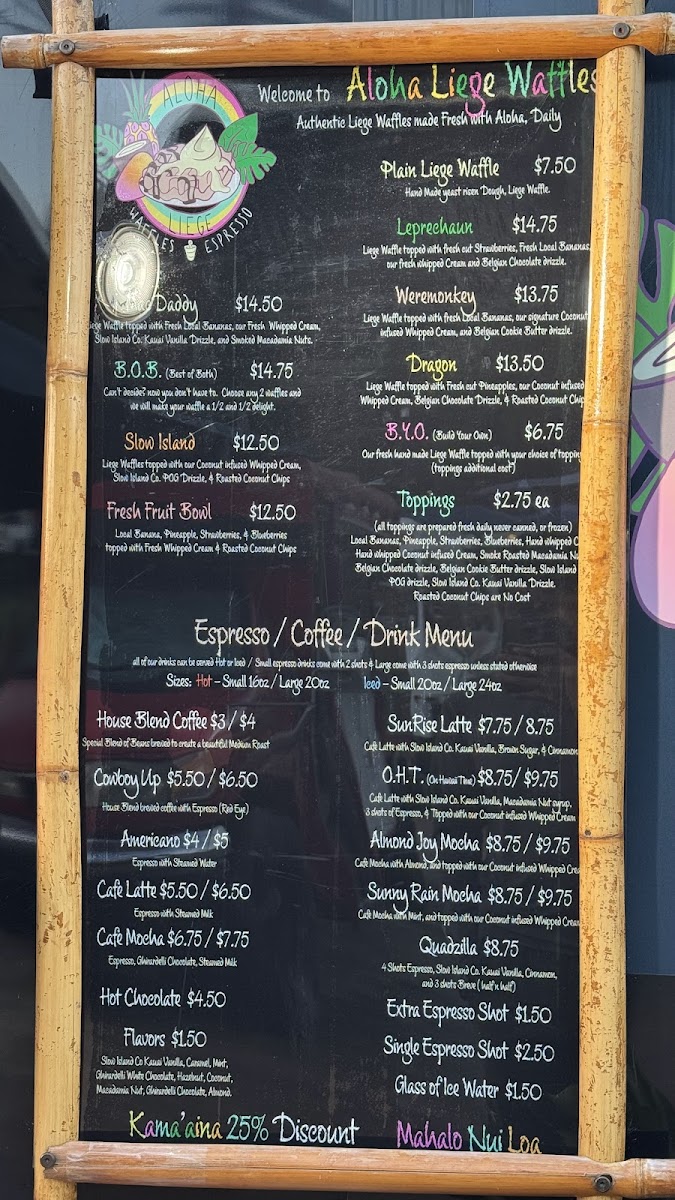 ALOHA
LIEGE
WAFFLES ESPRESSO
Welcome to Aloha Liege Waffles
Authentic Liege Waffles made Fresh with Aloha, Daily
Plain Liege Waffle $7.50
Hand Made yeast risen Dough, Liege Waffle.
Leprechaun $14.75
Liege Waffle topped with fresh cut Strawberries, Fresh Local Bananas,
our fresh whipped Cream and Belgian Chocolate drizzle.
Weremonkey $13.75
Liege Waffle topped with fresh Local Bananas, our signature Coconut
infused Whipped Cream, and Belgian Cookie Butter drizzle.
Dragon $13.50
Liege Waffle topped with Fresh cut Pineapples, our Coconut infused
Whipped Cream, Belgian Chocolate Drizzle, & Roasted Coconut Chips
B.Y.O. (Build Your Own) $6.75
Our fresh hand made Liege Waffle topped with your choice of
(toppings additional cost)
Toppings $2.75 ea
(all toppings are prepared fresh daily never canned, or frozen)
Local Bananas, Pineapple, Strawberries, Blueberries, Hand whipped
Hand whipped Coconut infused Cream, Smoke Roasted Macadamia
Belgian Chocolate drizzle, Belgian Cookie Butter drizzle, Slow Island
POG drizzle, Slow Island Co. Kauai Vanilla Drizzle.
Roasted Coconut Chips are No Cost
Daddy $14.50
Liege Waffle topped with Fresh Local Bananas, our Fresh Whipped Cream,
Slow Island Co. Kauai Vanilla Drizzle, and Smoked Macadamia Nuts.
B.O.B. (Best of Both) $14.75
Can't decide? now you don't have to. Choose any 2 waffles and
we will make your waffle a 1/2 and 1/2 delight.
Slow Island $12.50
Liege Waffles topped with our Coconut infused Whipped Cream,
Slow Island Co. POG Drizzle, & Roasted Coconut Chips
Fresh Fruit Bowl $12.50
Local Banana, Pineapple, Strawberries, & Blueberries
topped with Fresh Whipped Cream & Roasted Coconut Chips
Espresso / Coffee / Drink Menu
all of our drinks can be served Hot or Iced / Small espresso drinks come with 2 shots & Large come with 3 shots espresso unless stated otherwise
Sizes: Hot - Small 16oz / Large 20oz Iced - Small 20oz / Large 24oz
House Blend Coffee $3 / $4
Special Blend of Beans brewed to create a beautiful Medium Roast
Cowboy Up $5.50 / $6.50
House Blend brewed coffee with Espresso (Red Eye)
Americano $4 / $5
Espresso with Steamed Water
Café Latte $5.50 / $6.50
Espresso with Steamed Milk
Café Mocha $6.75 / $7.75
Espresso, Ghirardelli Chocolate, Steamed Milk
Hot Chocolate $4.50
Flavors $1.50
Slow Island Co Kauai Vanilla, Caramel, Mint,
Ghirardelli White Chocolate, Hazelnut, Coconut,
Macadamia Nut, Ghirardelli Chocolate, Almond.
SunRise Latte $7.75 / 8.75
Café Latte with Slow Island Co. Kauai Vanilla, Brown Sugar, & Cinnamon
O.H.T. (On Hawaii Time) $8.75 / $9.75
Café Latte with Slow Island Co. Kauai Vanilla, Macadamia Nut syrup,
3 shots of Espresso, & Topped with our Coconut infused Whipped Cream
Almond Joy Mocha $8.75 / $9.75
Café Mocha with Almond, and topped with our Coconut infused Whipped
Sunny Rain Mocha $8.75 / $9.75
Café Mocha with Mint, and topped with our Coconut infused Whipped
Quadzilla $8.75
4 Shots Espresso, Slow Island Co. Kauai Vanilla, Cinnamon,
and 3 shots Breve ( half n half)
Extra Espresso Shot $1.50
Single Espresso Shot $2.50
Glass of Ice Water $1.50
Kama'aina 25% Discount
Mahalo Nui Loa